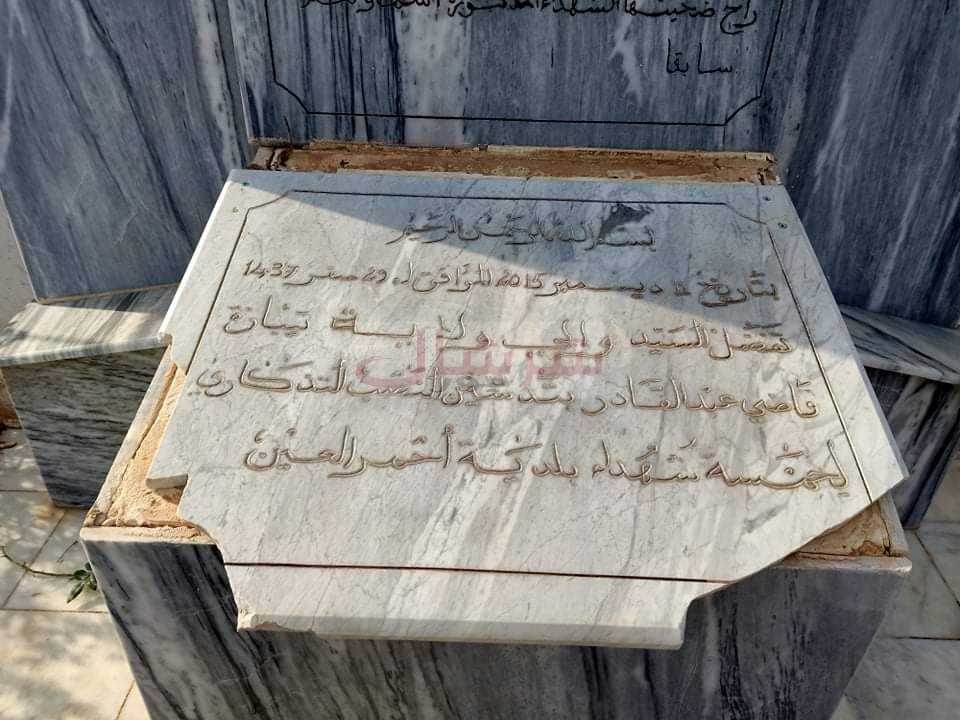 راح ضحيتها الشهداء المذكورة أسماؤهم
سابقا
بسم الله الرحمن الرحيم
بتاريخ 11 ديسمبر 2015 الموافق لـ 29 صفر 1437
تفضل السيد والي ولاية تيبازة
قاضي عبد القادر بتدشين النصب التذكاري
لخمسة شهداء بلدية أحمر العين
شرشال